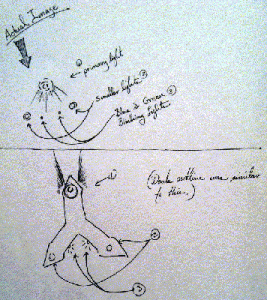 Actual Image
① primary light
Smaller lights ②
Blue & Green ③
blinking lights
①
②
③
(Double outline was similar
to this.)